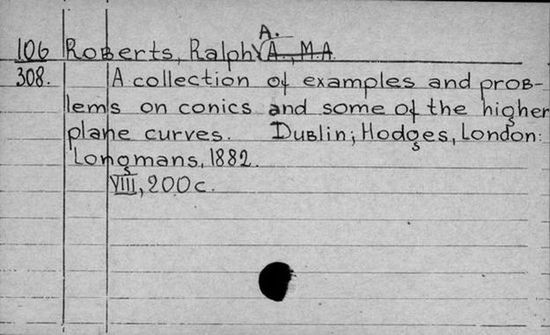 106 Roberts, Ralph A. A., M.A.
308. A collection of examples and prob-
lems on conics and some of the higher
plane curves. Dublin; Hodges, London:
Longmans, 1882.
VIII, 200 c.